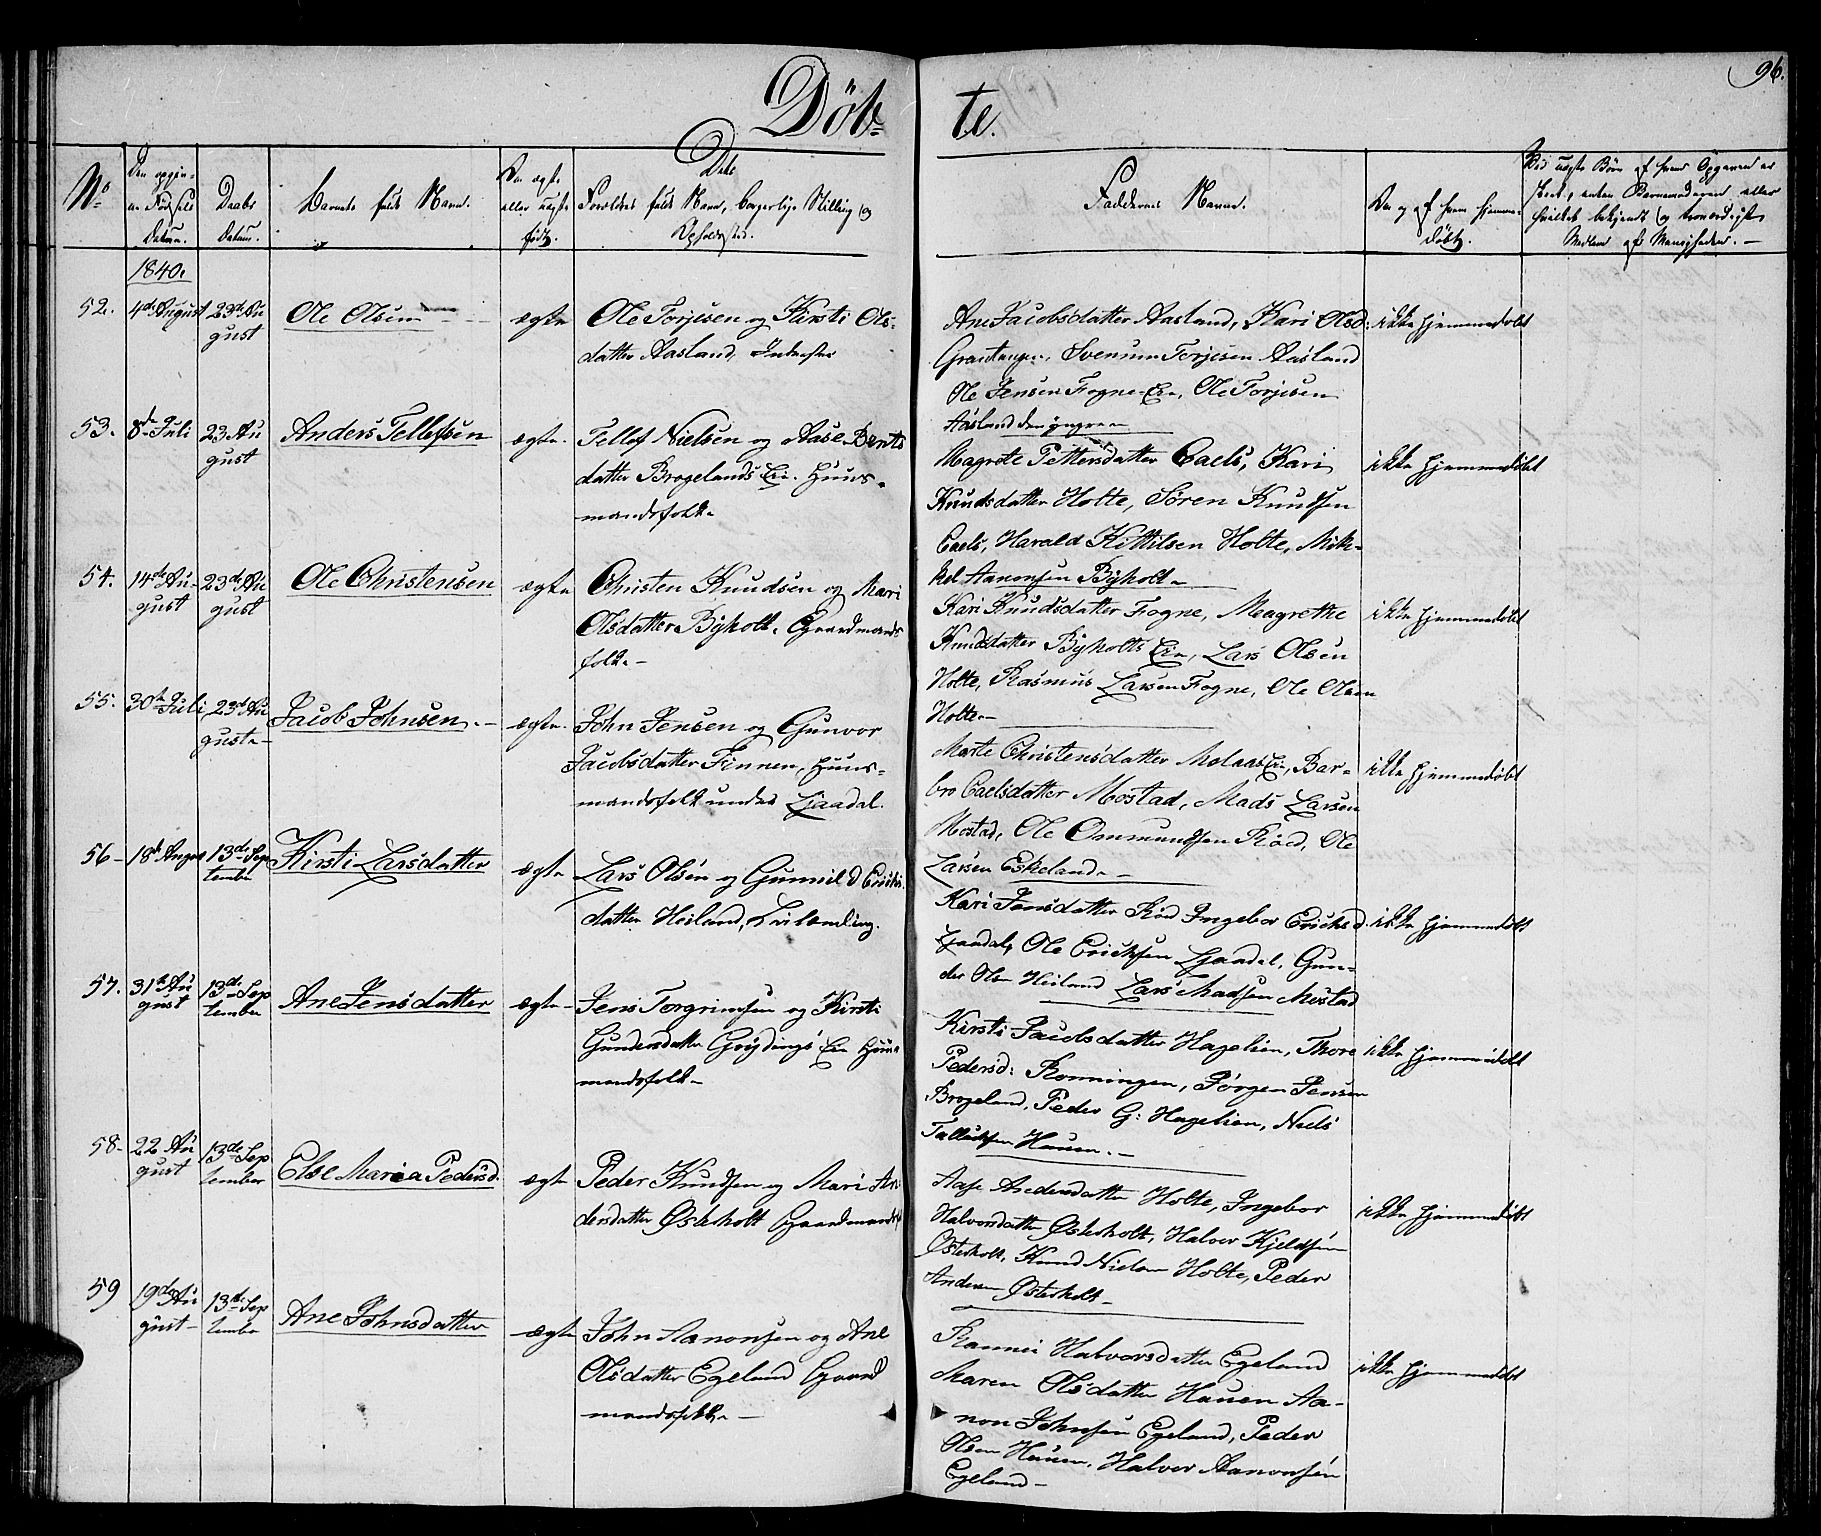 96.
Døb=
te.
No
Den opgivne Fødsels Datum.
Daabs Datum.
Barnets fulde Navn.
Om ægte eller uægte født.
Dets Forældres fulde Navn, borgerlige Stilling og Opholdssted.
Faddernes Navne.
Om og af hvem hjemmedøbt.
1840.
52. 4de August 23de August Ole Olsen ægte Ole Torjesen og Kirsti Olsdatter Aasland, Inderster
Ane Jacobsdatter Aasland, Kari Olsd: ikke hjemmedøbt
Svenum Torjesen Aasland
Ole Jensen Fogne Eie, Ole Torjesen
Aasland den yngre
53. 8de Juli 23 August Anders Tellefsen ægte. Tellef Nielsen og Aase Bentsdatter Brogelands Eie. Huusmandsfolk
Magrete Pettersdatter Caels, Kari ikke hjemmedøbt
Knudsdatter Holte, Søren Knudsen
Caels, Harald Kittilsen Holte, Mik-
kel Aanonsen Byholt
54. 14de August 23de August Ole Christensen ægte Christen Knudsen og Mari Olsdatter Byholt. Gaardmandsfolk
Kari Knudsdatter Fogne, Magrethe ikke hjemmedøbt
Knudsdatter Byholts Eie, Lars Olsen
Holte, Rasmus Larsen Fogne, Ole Olsen
Holte
55. 30te Juli 23de August Jacob Johnsen ægte. John Jensen og Gunvor Jacobsdatter Finnen, Huusmandsfolk under Ljaadal.
Marte Christensdatter Molaas Eie, Bar- ikke hjemmedøbt
bro Caelsdatter Mostad, Mads Larsen
Mostad, Ole Ommundsen Röed, Ole
Larsen Eskeland
56 18de August 13de September Kirsti Larsdatter ægte Lars Olsen og Gunnild Ericksdatter Heiland, Leilænding.
Kari Jensdatter Röd Ingebor Ericksd. ikke hjemmedøbt
Ljaadal, Ole Ericksen Ljaadal, Gun-
der Olsen Heiland Lars Madsen Mostad
57. 31te August 13de September Ane Jensdatter ægte Jens Torgrimsen og Kirsti Gundersdatter Grydings Eie Huusmandsfolk
Kirsti Jacobsdatter Hagelien, Thore ikke hjemmedøbt
Pedersd: Rønningen, Jørgen Jensen
Brogeland, Peder G: Hagelien, Niels
Tellefsen Hauen.
58. 22 August 13de September Else Maria Pedersd. ægte Peder Knudsen og Mari Andersdatter Østerholt Gaardmandsf
Aase Andersdatter Holte, Ingebor ikke hjemmedøbt
Halvorsdatter Østerholt, Halvor Kjeldsen
Østerholt, Knud Nielsen Holte, Peder
Andersen Østerholt
59 19de August 13de September Ane Johnsdatter ægte John Aanonsen og Ane Olsdatter Egeland Gaardmandsfolk
Rannei Halvorsdatter Egeland ikke hjemmedøbt
Maren Olsdatter Hauen Aa-
non Johnsen Egeland, Peder
Olsen Hauen, Halvor Aanonsen
Egeland